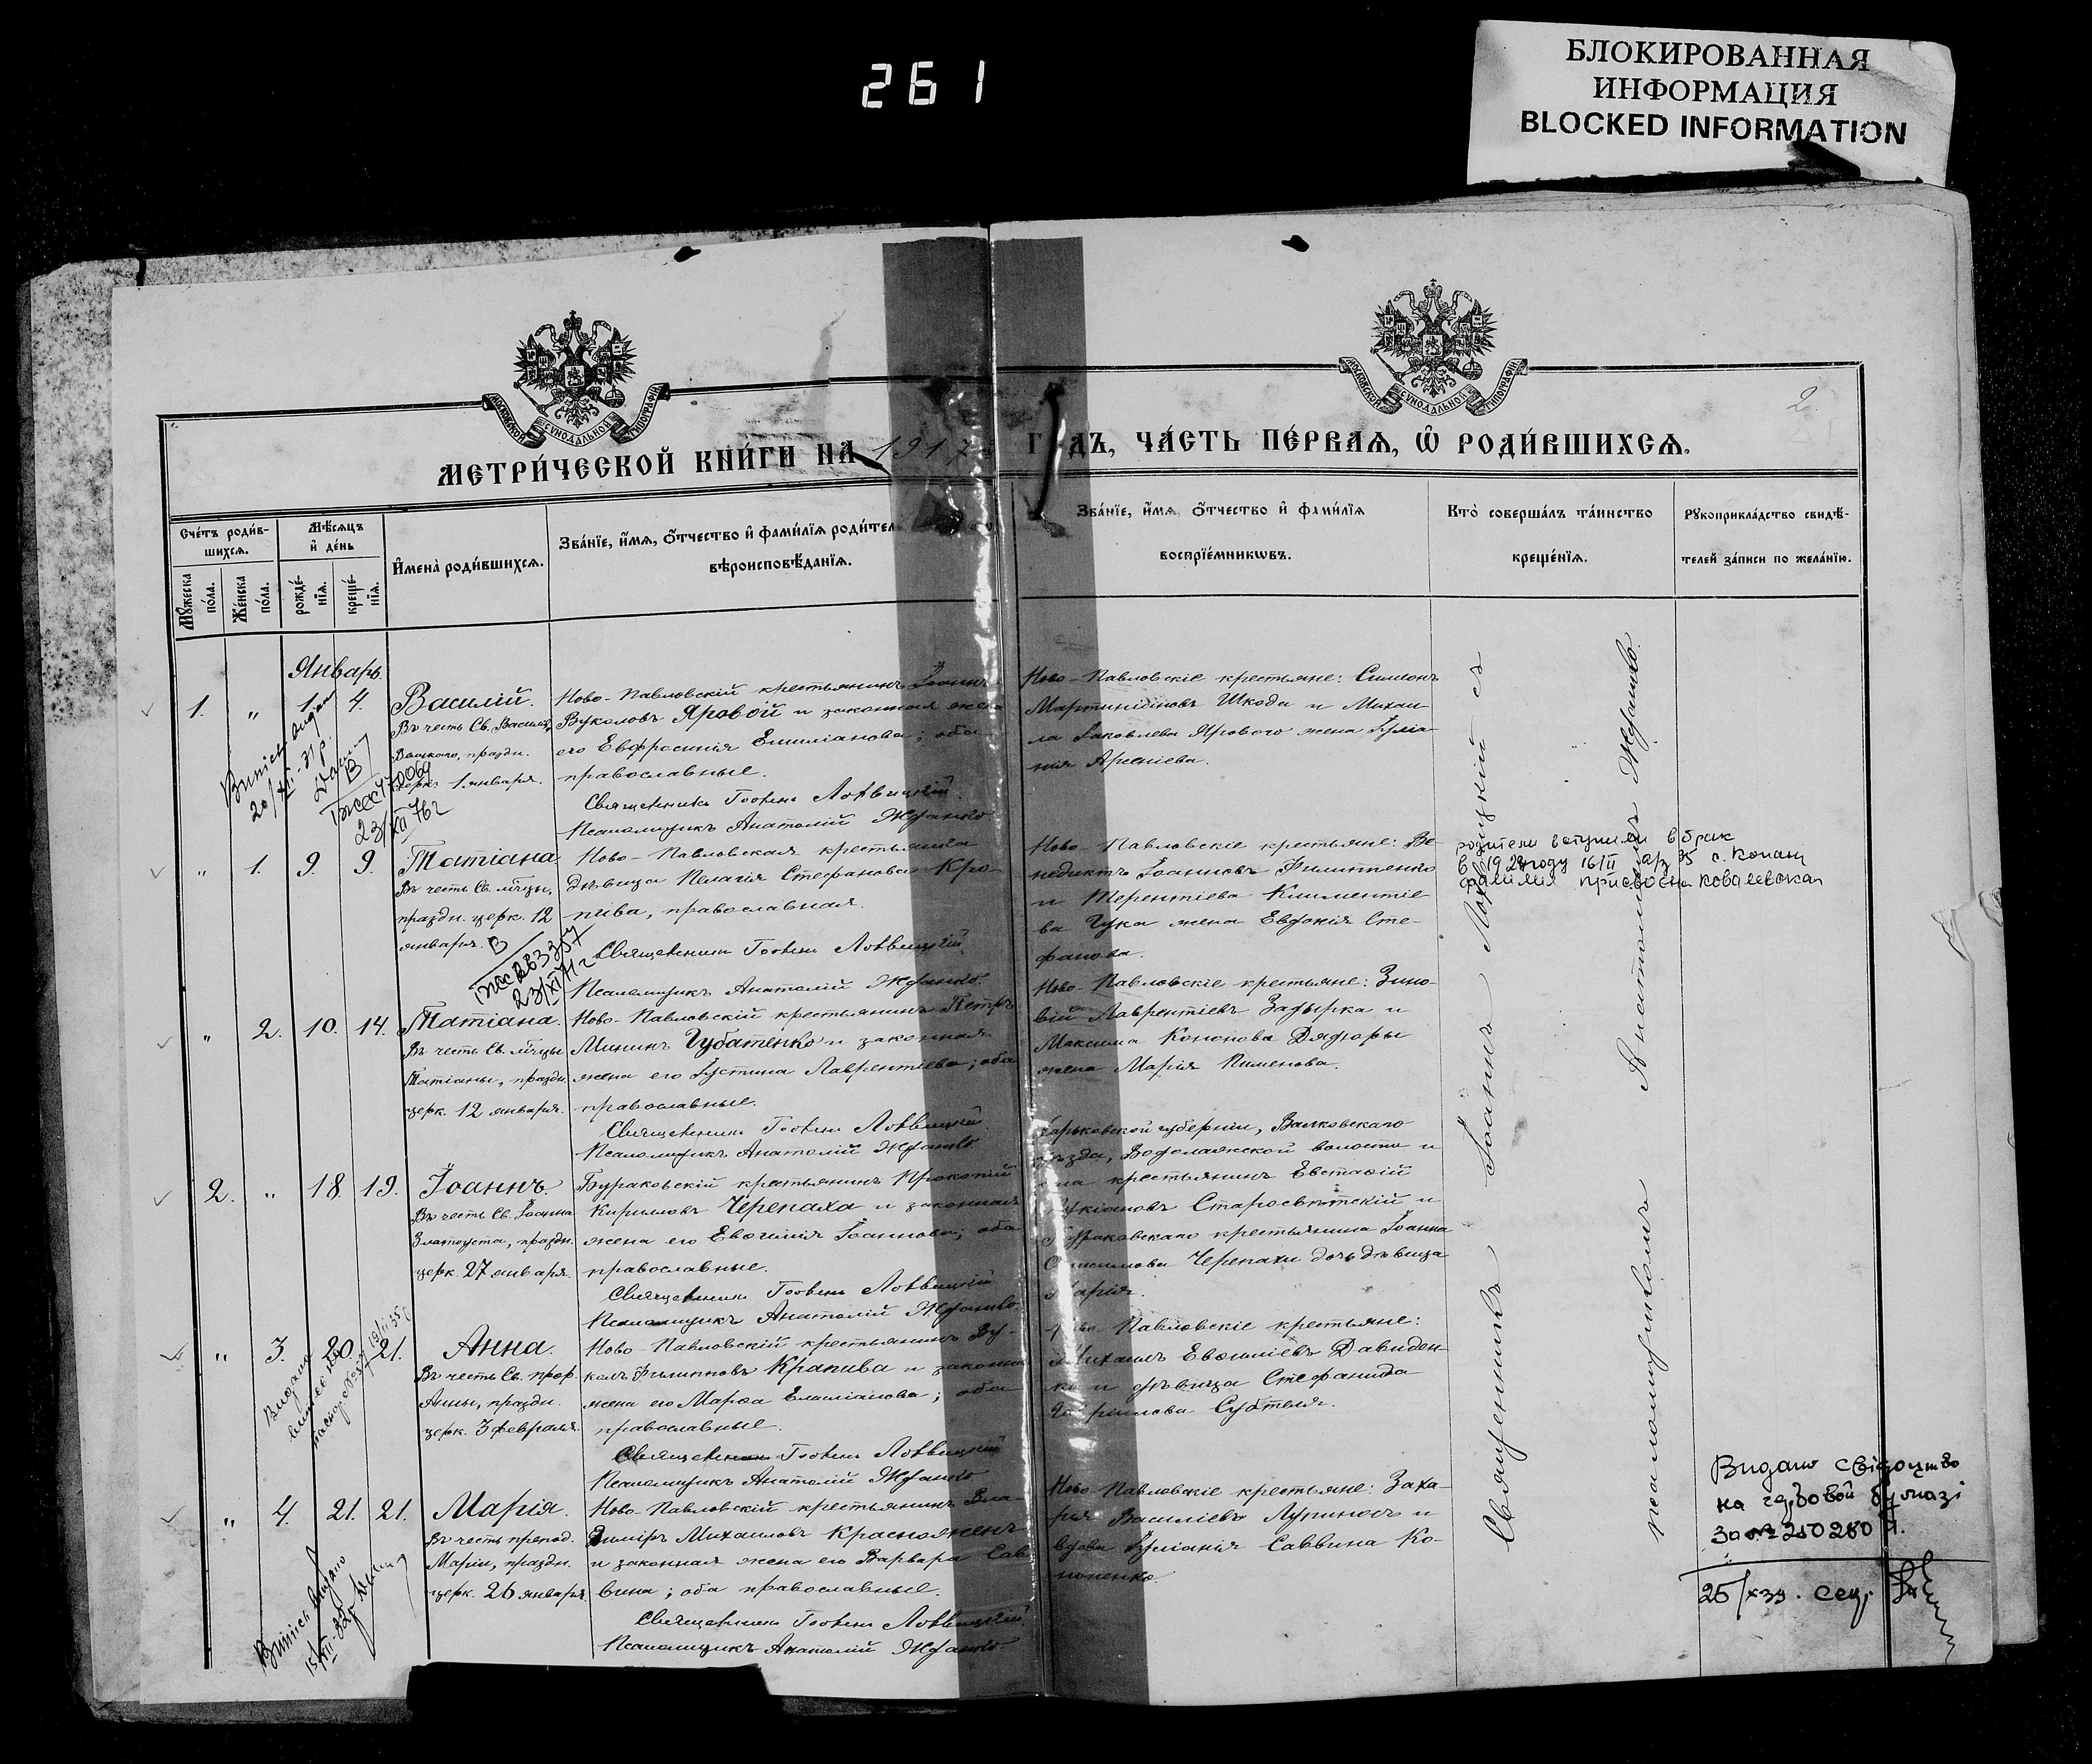 261
БЛОКИРОВАННАЯ
ИНФОРМАЦИЯ
BLOCKED INFORMATION
МОСКОВСКОЙ СУНОДАЛЬНОЙ ТИПОГРАФІИ
МОСКОВСКОЙ СУНОДАЛЬНОЙ ТИПОГРАФІИ
2.
МЕТРИ́ЧЕСКОЙ КНИ́ГИ НА 1917 Г ДЪ, ЧА́СТЬ ПЕ́РВАѦ, Ѡ҆ РОДИ́ВШИХСѦ.
Сче́тъ роди́в-
шихсѧ.
Мꙋжеска по́ла.
Же́нска по́ла.
Мѣ́сѧцъ
и҆ де́нь
рожде́-
нїѧ.
креще́-
нїѧ.
И҆мена̀ роди́вшихсѧ.
Зва́нїе, и҆́мѧ, о҆́тчество и҆ фами́лїѧ роди́тел
вѣроисповѣ́данїѧ.
Зва́нїе, и҆́мѧ, о҆́тчество и҆ фами́лїѧ
воспрїе́мникѡвъ.
Кто̀ соверша́лъ та́инство
креще́нїѧ.
Рꙋкоприкла́дство свидѣ́-
телей за́писи по жела́нїю.
Январь.
1. " 1. 4.
Василій.
Въ честь Св. Василія
праздн.
церк. 1 января.
Ново-Павловскій крестьянинъ Іоаннъ
Вуколовъ Яровой и законная жена
его Евфросинія Емиліанова; оба
православные.
Священникъ Іоаннъ Лохвицкій
Псаломщикъ Анатолій Жданко
Ново-Павловскіе крестьяне: Симеонъ
Мартиніановъ Шкода и Михаи-
ла Іаковлева Ярового жена Іуліа-
нія Арсеніева.
Витіс видан
20/XII-31 р.
23/XII 76 г
" 1. 9. 9.
Татіана
Въ честь Св. м-цы,
праздн. церк. 12
января.
Ново-Павловская крестьянка
дѣвица Пелагія Стефанова Кро-
пива, православная.
Священникъ Іоаннъ Лохвицкій
Псаломщикъ Анатолій Жданко.
Ново-Павловскіе крестьяне: Ве-
недиктъ Іоанновъ Филиппенко
и Терентіева Климентіе-
ва Чука жена Евдокія Сте-
фанова.
родители вступили в брак
в 1928 году 16/II а/з 35 с. Копани
фамилия присвоена Ковалевская
" 2. 10. 14.
Татіана.
Въ честь Св. м-цы
Татіаны, праздн.
церк. 12 января.
Ново-Павловскій крестьянинъ Петръ
Мининъ Губатенко и законная
жена его Іустина Лаврентіева; оба
православные.
Священникъ Іоаннъ Лохвицкій
Псаломщикъ Анатолій Жданко
Ново-Павловскіе крестьяне: Зино-
вій Лаврентіевъ Задырка и
Максима Кононова Дядюры
жена Марія Пименова.
2. " 18. 19.
Іоаннъ.
Въ честь Св. Іоанна
Златоуста, праздн.
церк. 27 января.
Бураковскій крестьянинъ Прокопій
Кирилловъ Черепаха и законная
жена его Евѳимія Іоаннова; оба
православные.
Священникъ Іоаннъ Лохвицкій
Псаломщикъ Анатолій Жданко
Харьковской губерніи, Валковскаго
уѣзда, Водолажской волости и
села крестьянинъ Евстаѳій
Лукіановъ Старосвѣтскій и
Бураковскаго крестьянина Іоанна
Онисимова Черепахи дочь дѣвица
Марія.
" 3. 20. 21.
Анна.
Въ честь Св. прор.
Анны, праздн.
церк. 3 февраля.
Ново-Павловскій крестьянинъ Ву-
колъ Филипповъ Крапива и законная
жена его Марѳа Емиліанова; оба
православные.
Священникъ Іоаннъ Лохвицкій
Псаломщикъ Анатолій Жданко
Ново-Павловскіе крестьяне:
Михаилъ Евѳиміевъ Давиден-
ко и дѣвица Стефанида
Гавріилова Субтеля.
" 4. 21. 21.
Марія.
Въ честь препод.
Маріи, праздн.
церк. 26 января
Ново-Павловскій крестьянинъ Вла-
диміръ Михаиловъ Красножонъ
и законная жена его Варвара Сав-
вина; оба православные.
Священникъ Іоаннъ Лохвицкій
Псаломщикъ Анатолій Жданко
Ново-Павловскіе крестьяне: Заха-
рія Василіевъ Лупиносъ и
вдова Іуліанія Саввина Ко-
ноненко.
Витіс видано
15/XII-32р
Священникъ Іоаннъ Лохвицкій съ
псаломщикомъ Анатоліемъ Жданко.
Видано свідоцтво
на гербовой бумазі
За № 250280 Я.
25/X 39. Сец.